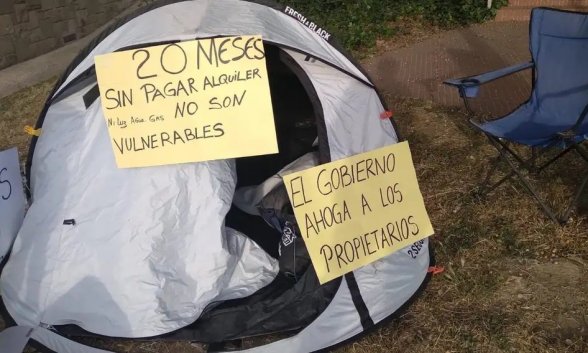 FRESH & BLACK
20 MESES
SIN PAGAR ALQUILER
Ni Luz Agua. GAS NO SON
VULNERABLES
EL GOBIERNO
AHOGA A LOS
PROPIETARIOS
S